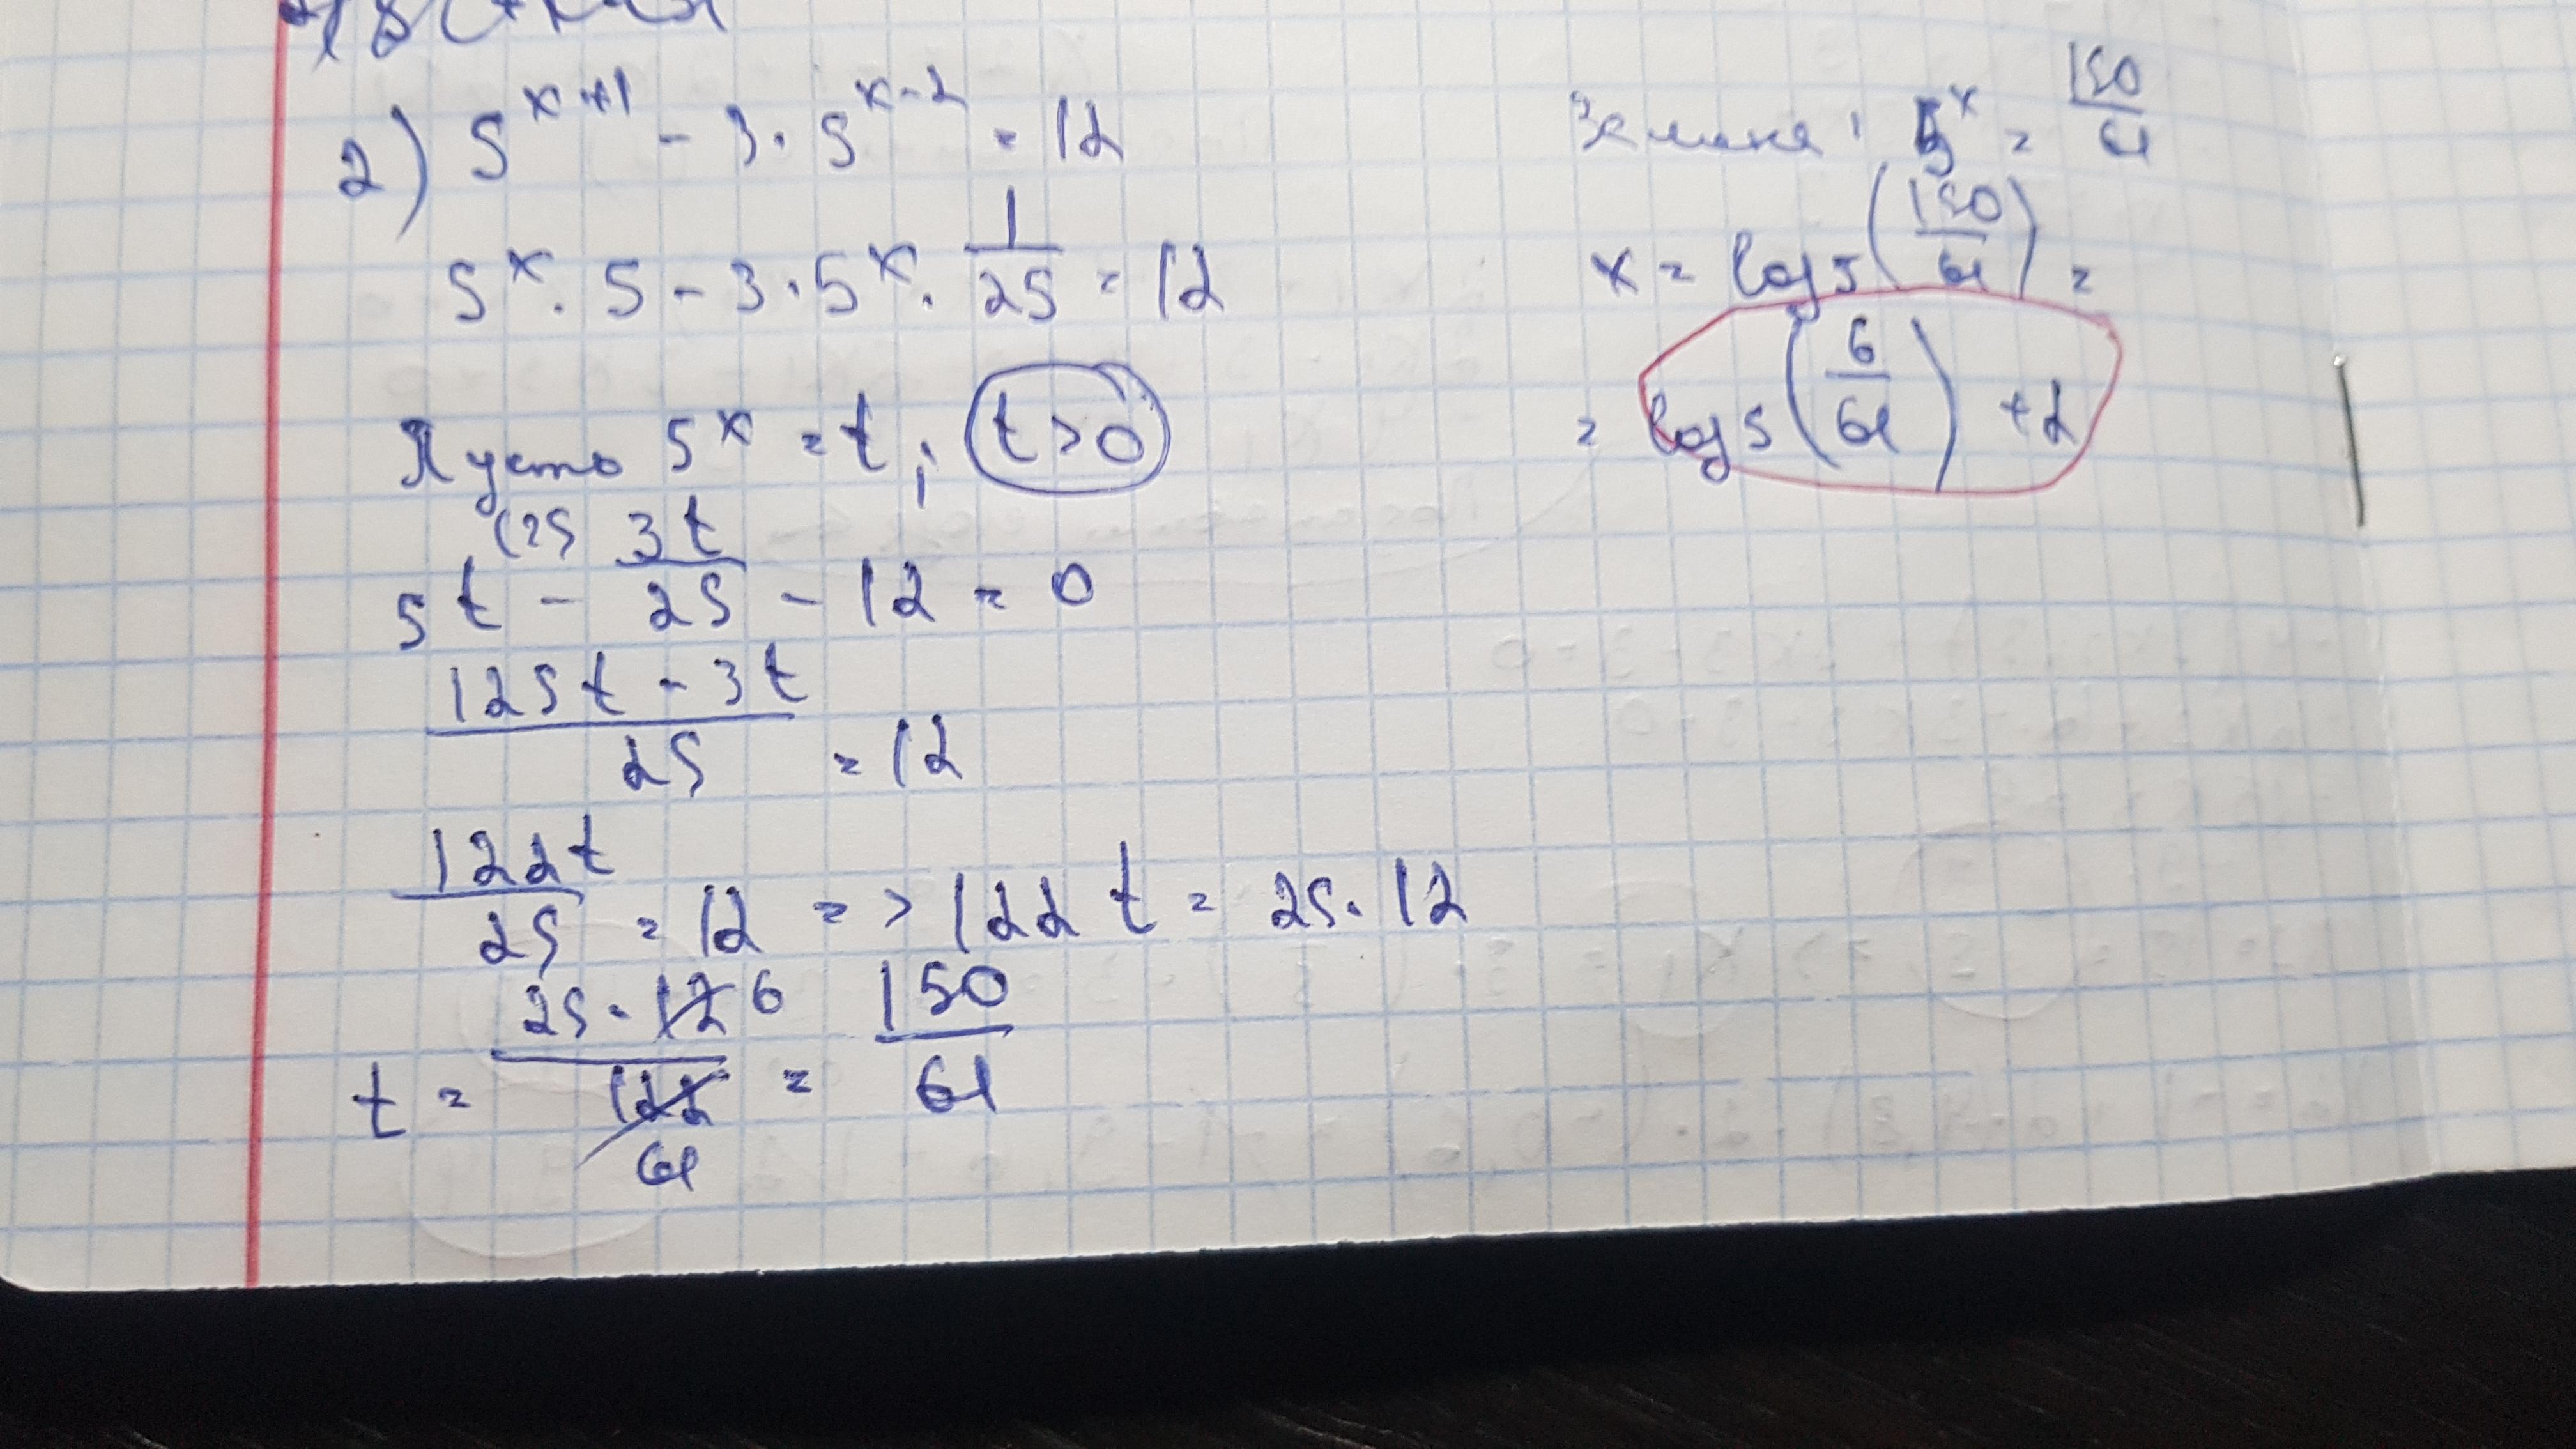 2) 5^(x+1) - 3·5^(x-2) = 12
5^x · 5 - 3·5^x · 1/25 = 12
Пусть 5^x = t; t>0
5t - (25 3t/25 - 12 = 0
(125t - 3t)/25 = 12
122t/25 = 12 => 122t = 25·12
t = 25·12 6/122 61 = 150/61
Замена: 5^x = 150/61
x = log5(150/61) =
= log5(6/61) + 2